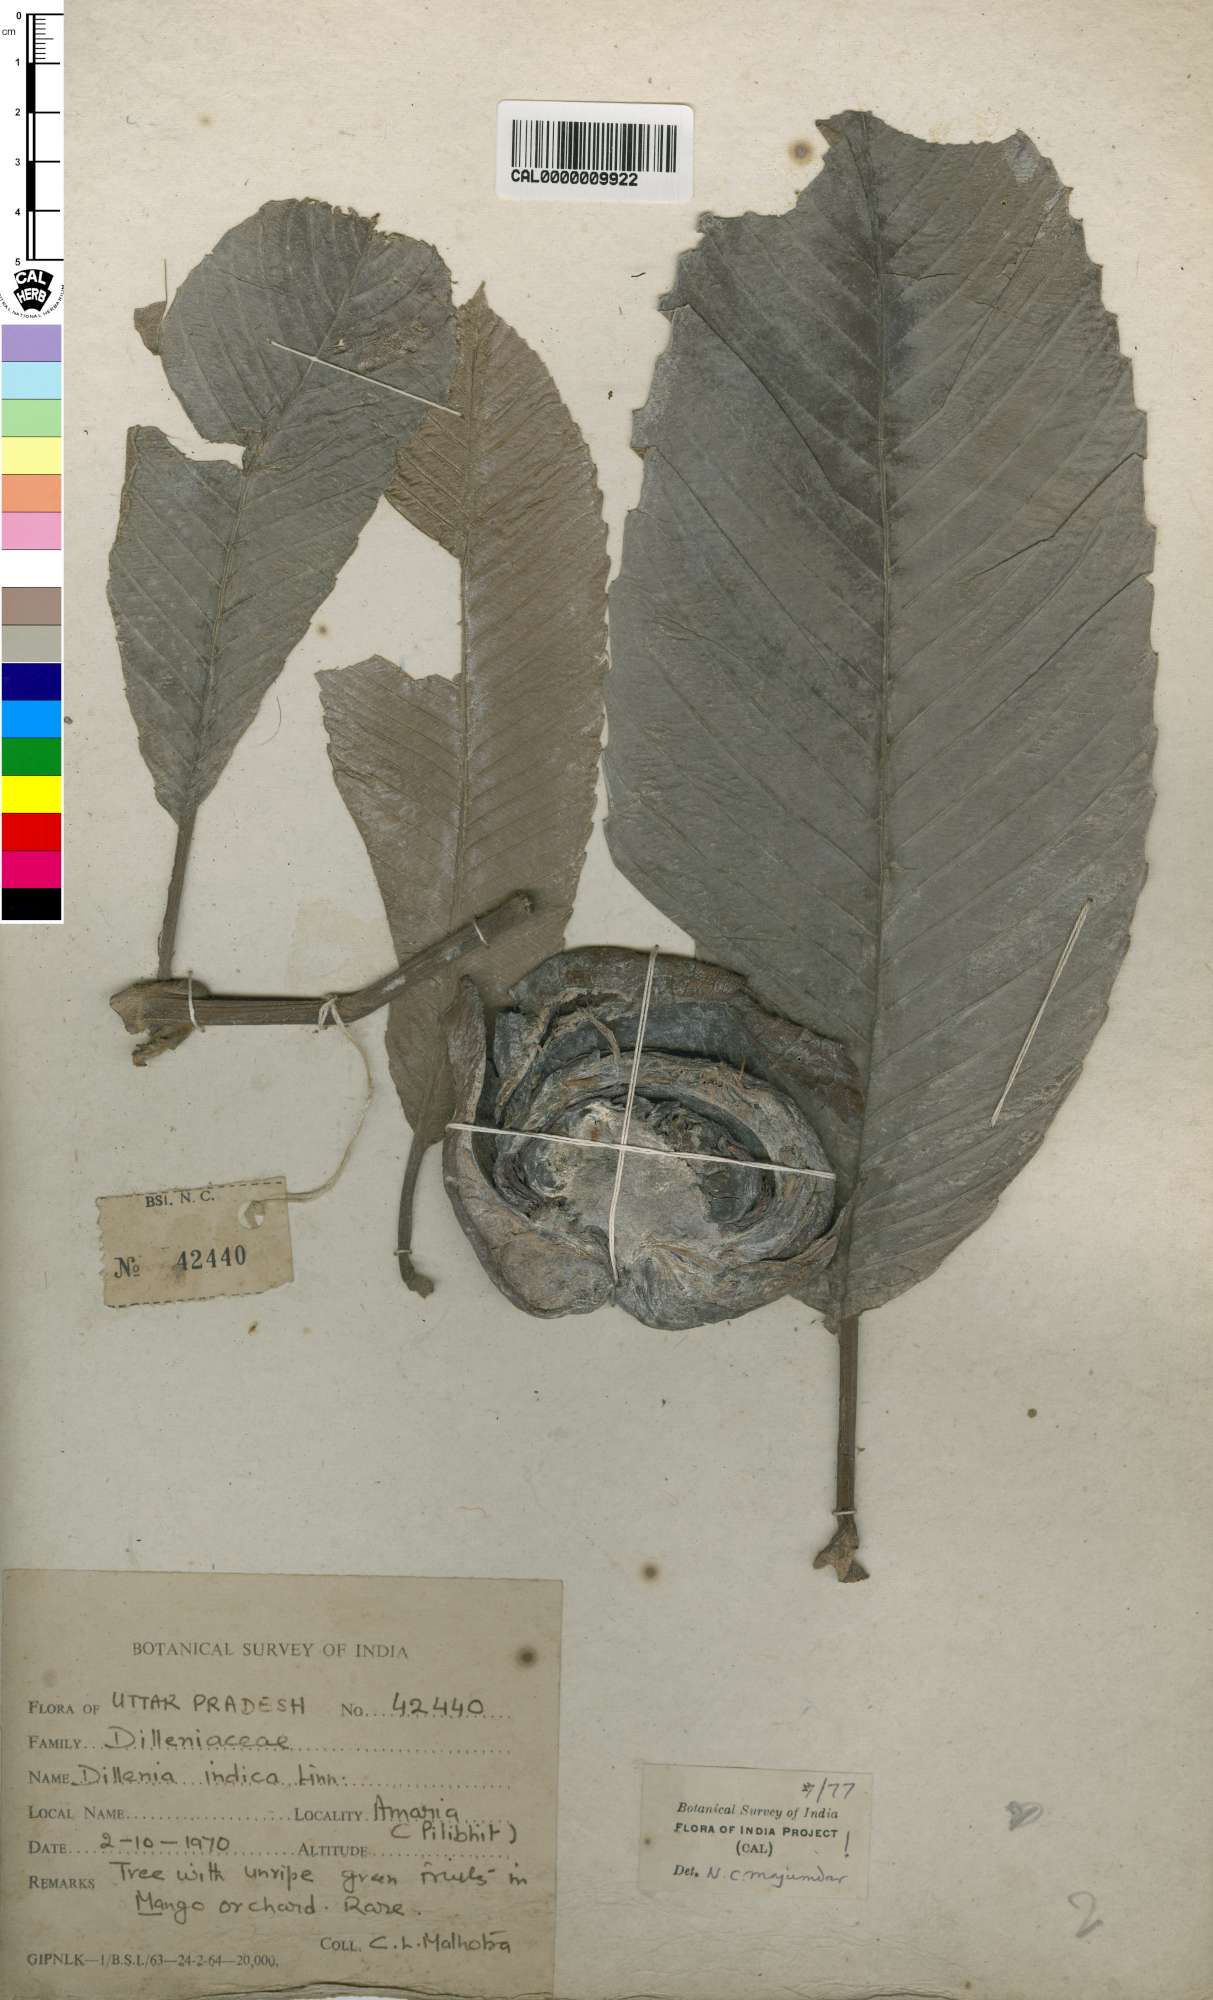 0
cm
1
2
3
4
5
CAL
HERB
CAL0000009922
BSI. N. C.
No 42440
BOTANICAL SURVEY OF INDIA
FLORA OF UTTAR PRADESH No. 42440
FAMILY Dilleniaceae
NAME Dillenia indica Linn.
LOCAL NAME LOCALITY Amaria
(Pilibhit)
DATE 2-10-1970 ALTITUDE
REMARKS Tree with unripe green fruits in
Mango orchard. Rare.
COLL. C. L. Malhotra
GIPNLK—1/B.S.I./63—24-2-64—20,000.
/77
Botanical Survey of India
FLORA OF INDIA PROJECT !
(CAL)
Det. N. C. Majumdar
2